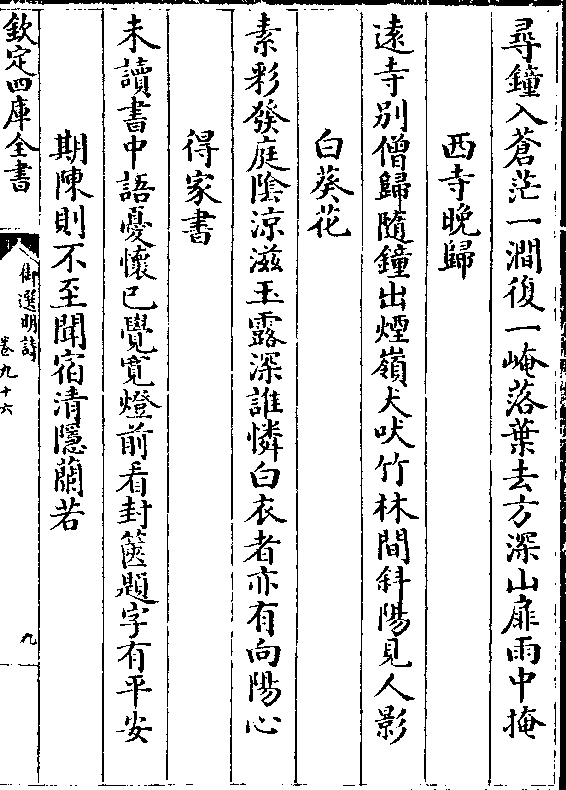 尋鐘入蒼茫一澗復一崦落葉去方深山扉雨中掩
西寺晚歸
遠寺别僧歸隨鐘出煙嶺犬吠竹林間斜陽見人影
白葵花
素彩發庭隂涼滋玉露深誰憐白衣者亦有向陽心
得家書
未讀書中語憂懷已覺寛燈前看封篋題字有平安
期陳則不至聞宿清隱蘭若
欽定四庫全書
御選明詩
卷九十六
九